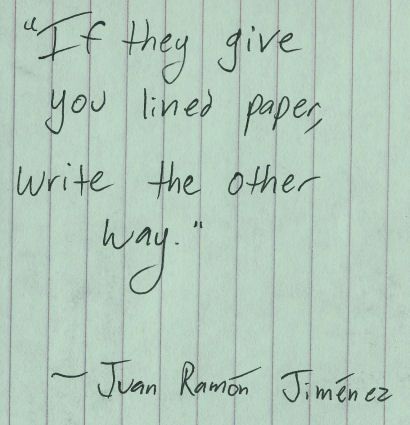 "If they give
you lined paper,
write the other
way."
~ Juan Ramón Jiménez